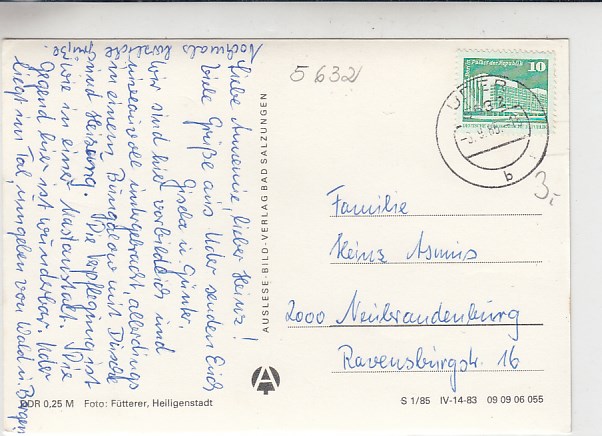 Liebe Annemie, lieber Heinz!
Viele Grüße aus Uder senden Euch
Gisela u. Günter.
Wir sind hier vorbildlich und
niveauvoll untergebracht allerdings
in einem Bungalow mit Dusche
und Heizung. Die Verpflegung ist
wie in einer Mastanstalt. Die
Gegend hier ist wunderbar. Uder
liegt im Tal, umgeben von Wald u. Bergen
Nochmals
herzliche
Grüße
AUSLESE-BILD-VERLAG BAD SALZUNGEN
5632
Palast der Republik
10
UDER
b
3,-
Familie
Heinz Asmus
2000 Neubrandenburg
Ravensburgstr. 16
DDR 0,25 M Foto: Fütterer, Heiligenstadt
S 1/85 IV-14-83 09 09 06 055